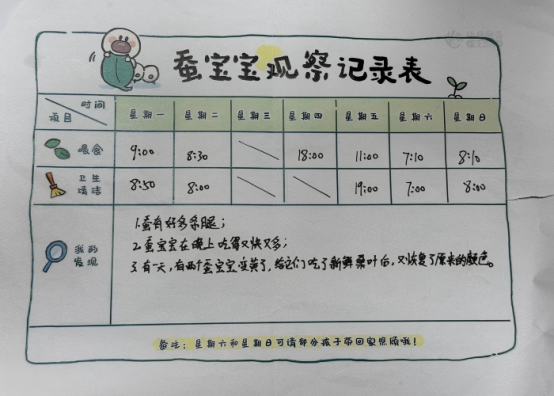 蚕宝宝观察记录表
时间
项目
星期一 星期二 星期三 星期四 星期五 星期六 星期日
喂食 9:00 8:30 18:00 11:00 7:10 8:10
卫生清洁 8:50 8:00 19:00 7:00 8:00
我的发现
1.蚕有好多条腿；
2.蚕宝宝在晚上吃得又快又多；
3.有一天，有两个蚕宝宝变黄了，给它们吃了新鲜桑叶后，又恢复了原来的颜色。
备注：星期六和星期日可请部分孩子带回家照顾哦！